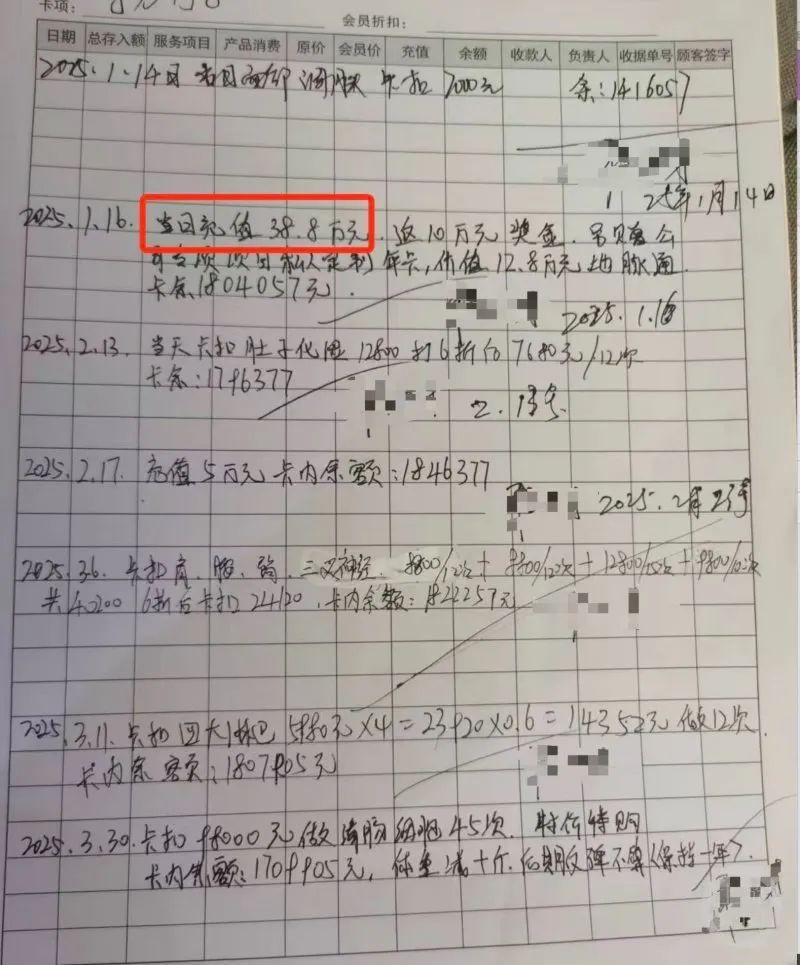 卡项：
会员折扣：
日期 总存入额 服务项目 产品消费 原价 会员价 充值 余额 收款人 负责人 收据单号 顾客签字
2025.1.14日 卡扣 7000元 余:1416057
2025年1月14日
2025.1.16. 当日充值 38.8万元. 返10万元奖金.
年卡,价值12.8万元地脉通
卡余1804057元.
2025.1.16
2025.2.13. 当天卡扣肚子化湿 12800 打6折后7680元/12次
卡余:1796377
2. 13号
2025.2.17. 充值5万元 卡内余额:1846377
2025.2月
2025.3.6. 卡扣肩、腸、三叉神经. 9800/12次+9800/12次+12800/15次+9800/10次
共40200 6折后卡扣24120.卡内余额:1822257元
2025.3.11. 卡扣四大淋巴 5980元×4=23920×0.6=14352元 做12次.
卡内余额:1807905元
2025.3.30.卡扣98000元做 45次. 特价特购
卡内余额:1709905元,体重减十斤.后期反弹不算(保持一年).